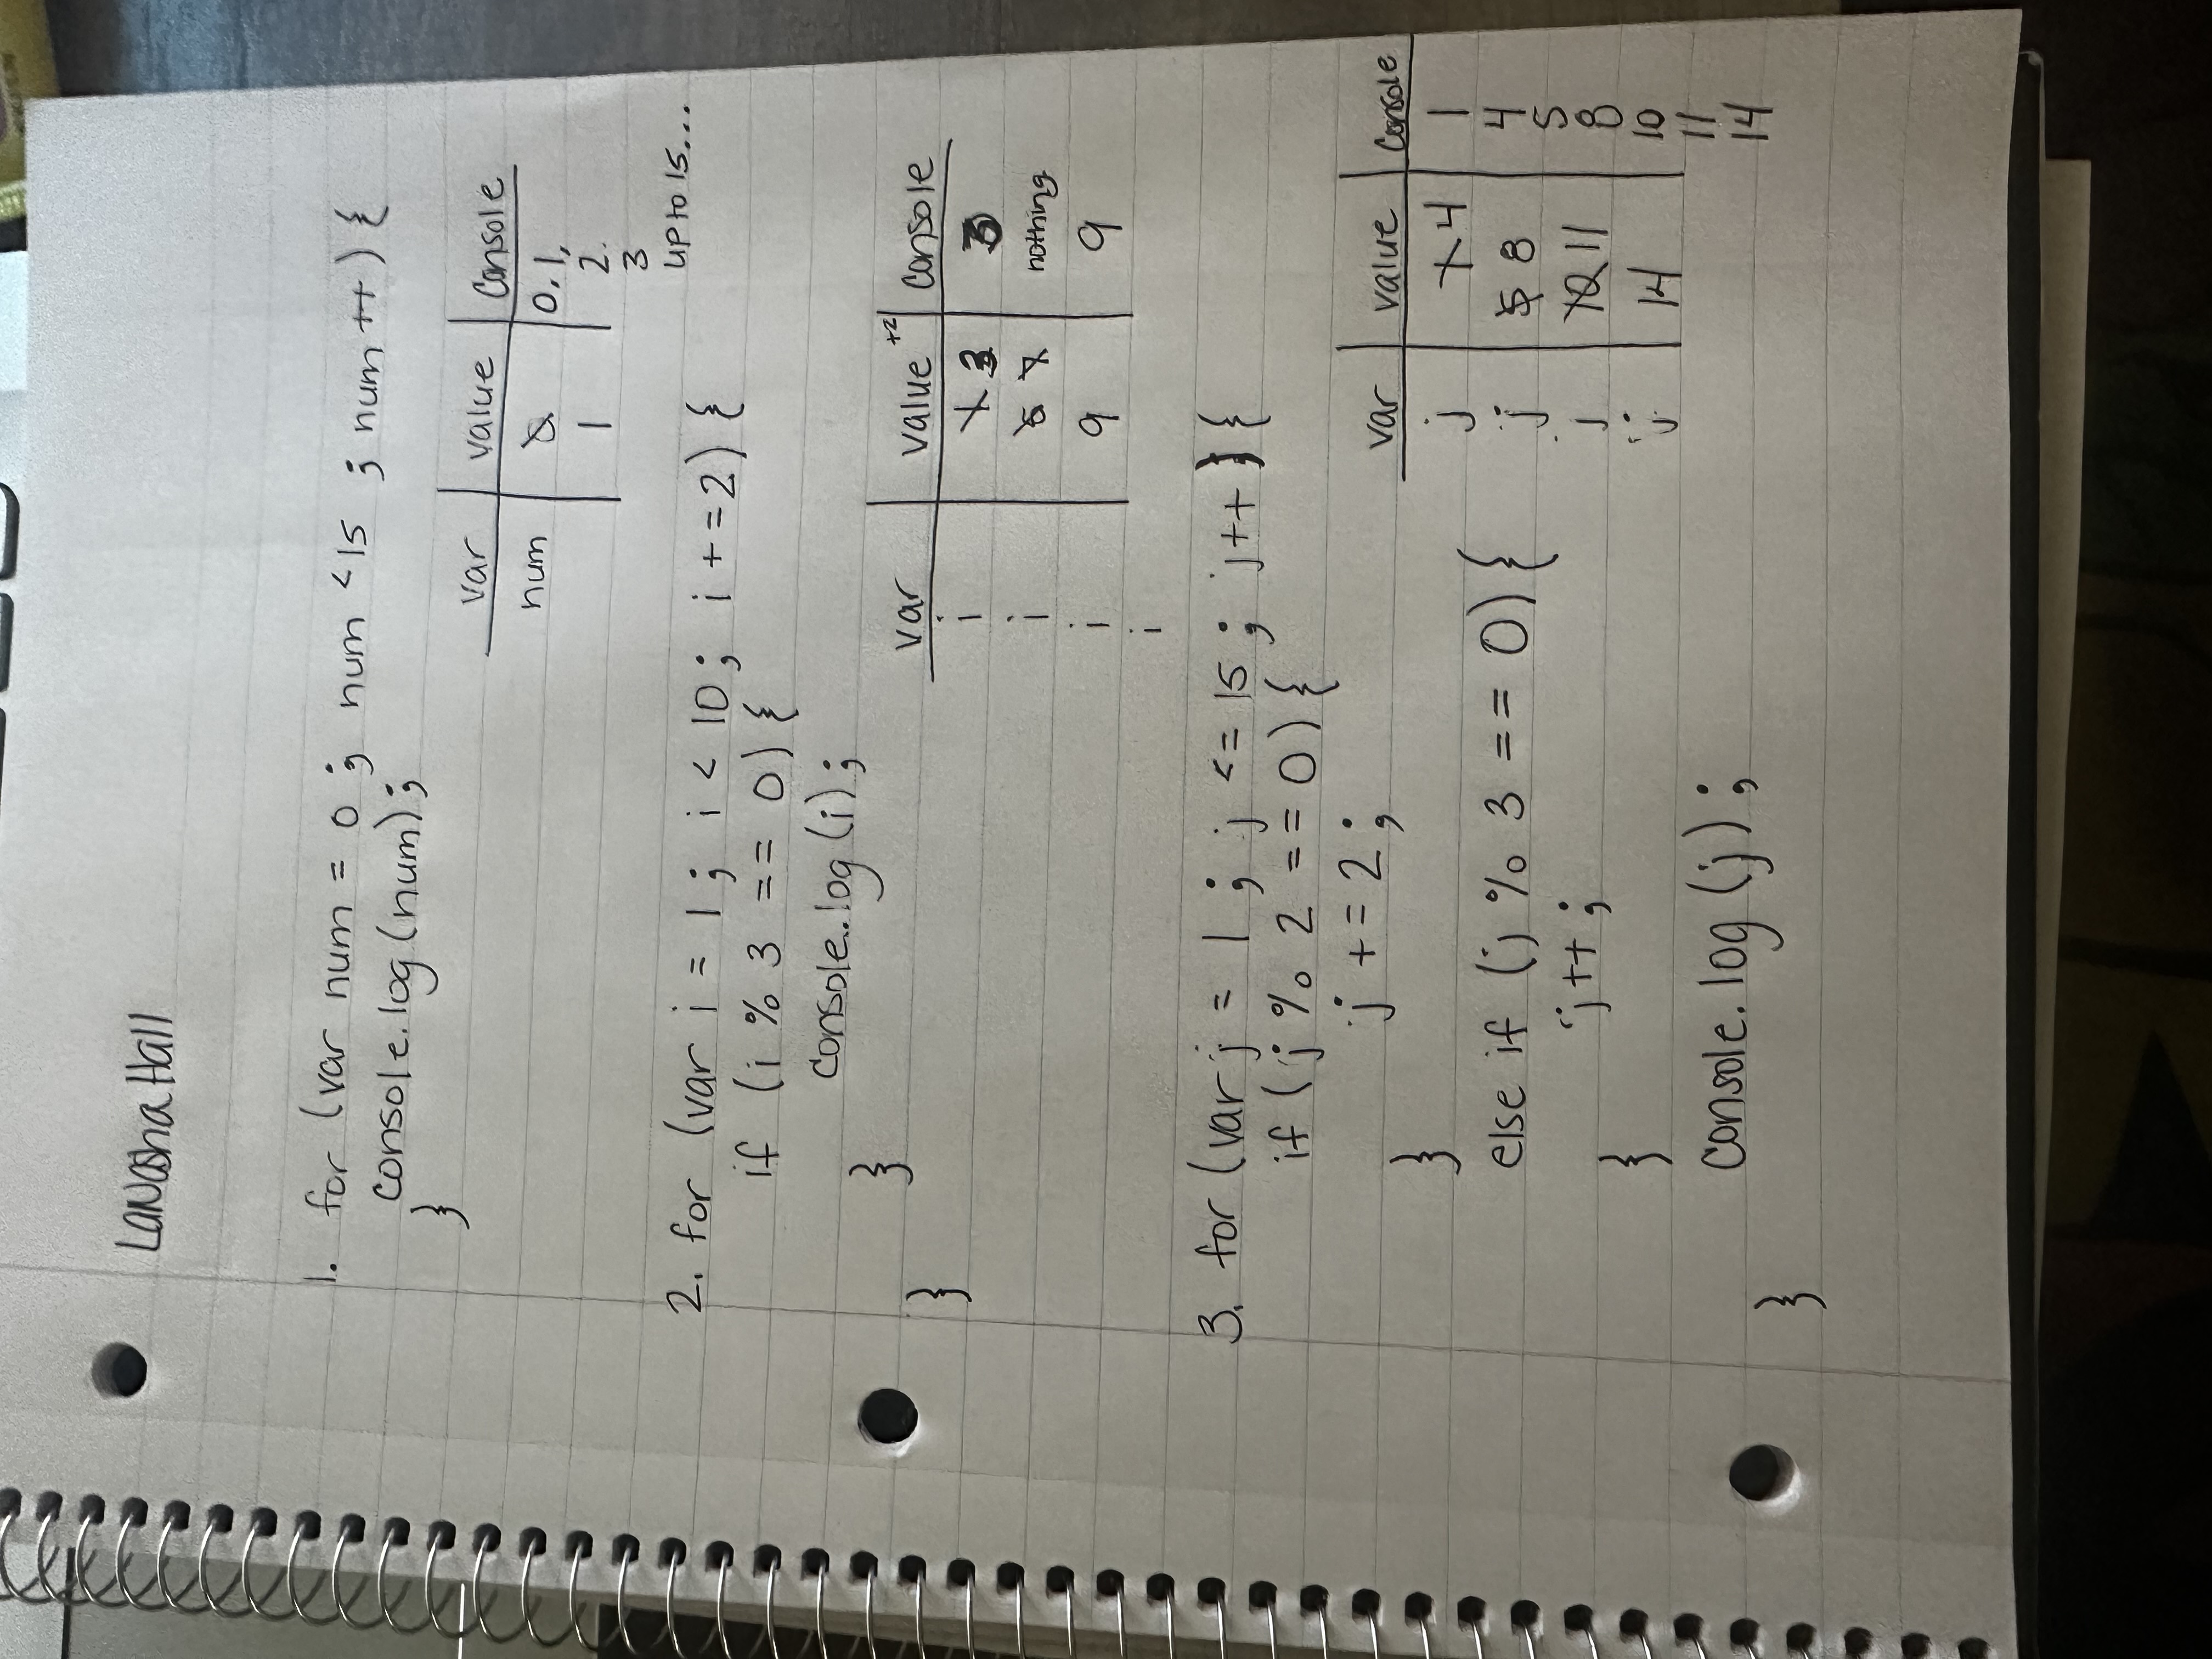 LaNasha Hall
1. for (var num = 0 ; num < 15 ; num ++ ) {
console.log (num) ;
}
var value console
num 0 0, 1,
1 2.
3
up to 15...
2. for (var i = 1 ; i < 10 ; i + = 2) {
if (i % 3 == 0) {
console..log (i) ;
}
}
var value +2 console
i 1 3 3
i 5 7 nothing
i 9 9
i
3. for (var j = 1 ; j <= 15 ; j++ ) {
if ( j % 2 == 0) {
j += 2 ;
}
else if (j % 3 == 0) {
j++ ;
}
console.log (j) ;
}
var value console
j 1 4 1
j 5 8 4
5
j 10 11 8
j 14 10
11
14